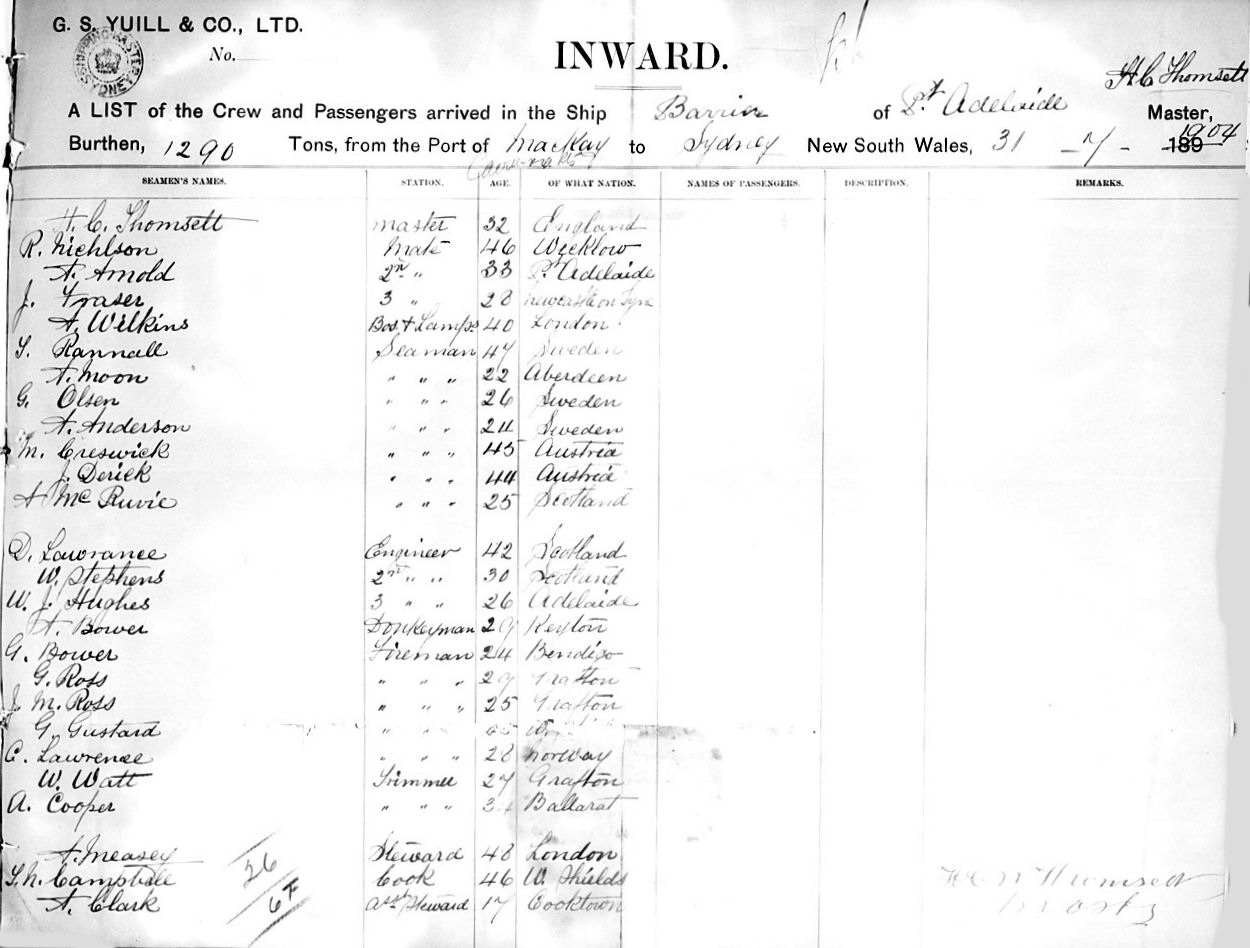 G. S. YUILL & CO., LTD.
SHIPPING MASTER SYDNEY
No.
INWARD.
H C Thomsett
A LIST of the Crew and Passengers arrived in the Ship Barrier of Pt Adelaide Master,
Burthen, 1290 Tons, from the Port of Mackay to Sydney New South Wales, 31 - 7 - 189 1904
SEAMEN'S NAMES. STATION. AGE. OF WHAT NATION. NAMES OF PASSENGERS. DESCRIPTION. REMARKS.
H. C. Thomsett master 32 England
R. Nichlson Mate 46 Wicklow
A. Arnold 2nd " 33 Pt Adelaide
J. Fraser 3 " 28 Newcastle on Tyne
A. Wilkins Bos & Lamps 40 London
T. Rannall Seaman 47 Sweden
A. Moon " " " 22 Aberdeen
G. Olsen " " " 26 Sweden
A. Anderson " " " 24 Sweden
M. Creswick " " " 45 Austria
J. Derick " " " 44 Austria
A McRuvie " " " 25 Scotland
D. Lawrance Engineer 42 Scotland
W. Stephens 2nd " " 30 Scotland
W. J. Hughes 3 " " 26 Adelaide
A. Bower Donkeyman 29 Keyton
G. Bower Fireman 24 Bendigo
G. Ross " " " 29 Grafton
J. M. Ross " " " 25 Grafton
G. Gustard
C. Lawrence " " " 28 Norway
W. Watt Trimmer 27 Grafton
A. Cooper " " " Ballarat
A. Measey Steward 48 London
T. N. Campbell Cook 46 W. Shields
A. Clark Asst Steward 17 Cooktown
26
6F
H C W Thomsett